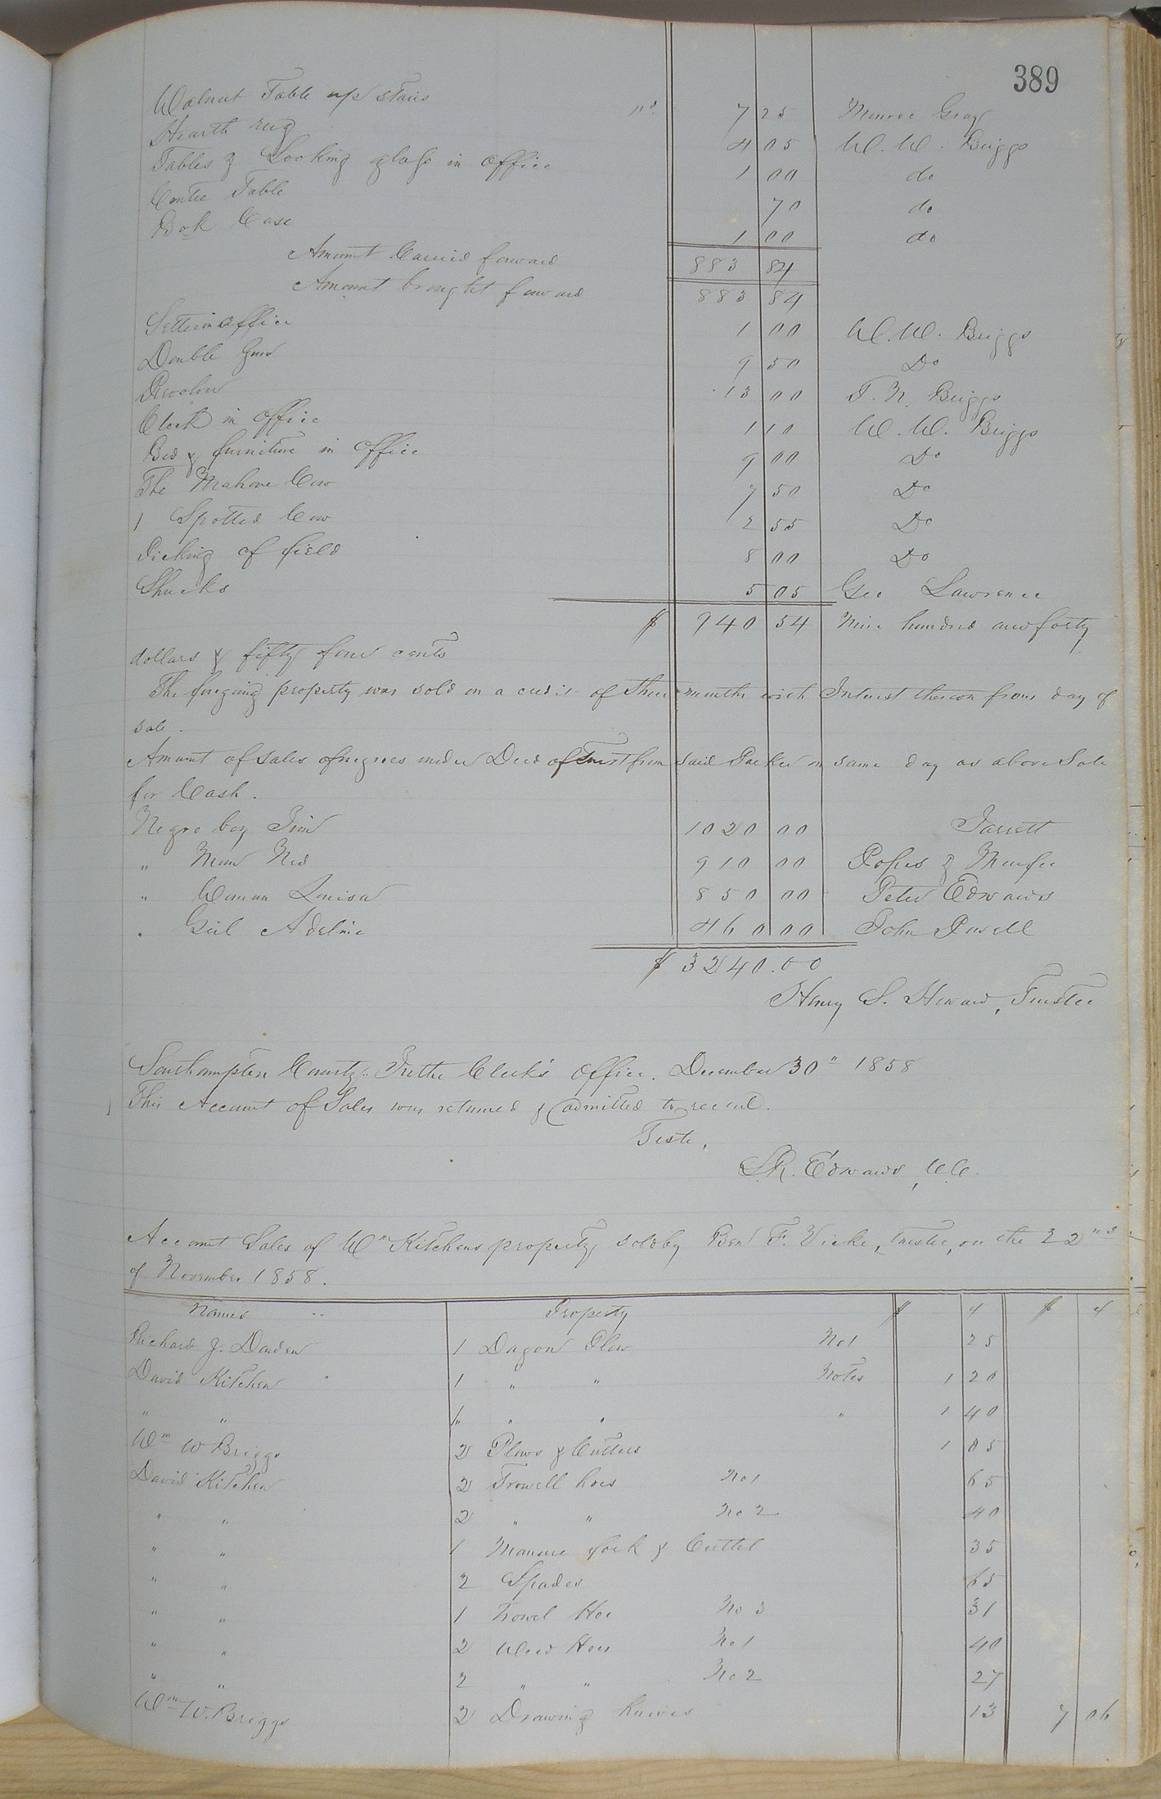 389
Walnut Table up stairs nd 7 25 Monroe Gray
Hearth rug 4 05 W. W. Briggs
Tables & Looking glass in office 1 00 do
Centre Table 70 do
Book Case 1 00 do
Amount Carried forward 883 84
Amount brought forward 883 84
Settee in office 1 00 W. W. Briggs
Double Gun 9 50 Do
Revolver 13 00 T. N. Briggs
Clock in office 1 10 W. W. Briggs
Bed & furniture in office 9 00 Do
The Mahone Cow 7 50 Do
1 Spotted Cow 2 55 Do
Picking of field 8 00 Do
Shucks 5 05 Geo Lawrence
$ 940 54 Nine hundred and forty
dollars & fifty four cents
The foregoing property was sold on a credit of Three months with Interest thereon from day of
sale.
Amount of sales of negroes under Deed of Trust from said Parker on same day as above Sale
for Cash.
Negro boy Jim 1020 00 Jarrett
" Man Ned 910 00 Popes &
" Woman Louisa 850 00 Peter Edwards
" Girl Adeline 460 00 John Powell
$ 3240.00
Henry S. Howard, Trustee
Southampton County: In the Clerk's Office. December 30" 1858
This Account of Sales was returned & admitted to record.
Teste,
L.R. Edwards, C.C.
Account Sales of Wm Kitchens property sold by Benj F. Vicke, trustee, on the 22nd
of November 1858.
Names Property $ ¢ $ ¢
Richard J. Darden 1 Dagon Plow No 1 25
David Kitchen 1 " " Notes 1 20
" " 1 " " " 1 40
Wm W Briggs 2 Plows & Cutters 1 05
David Kitchen 2 Trowell hoes No 1 65
" " 2 " " No 2 40
" " 1 Manure fork & Cutter 35
" " 2 Spades 65
" " 1 Trowel Hoe No 3 31
" " 2 Weed Hoes No 1 40
" " 2 " " No 2 27
Wm W. Briggs 2 Drawing knives 13 7 06